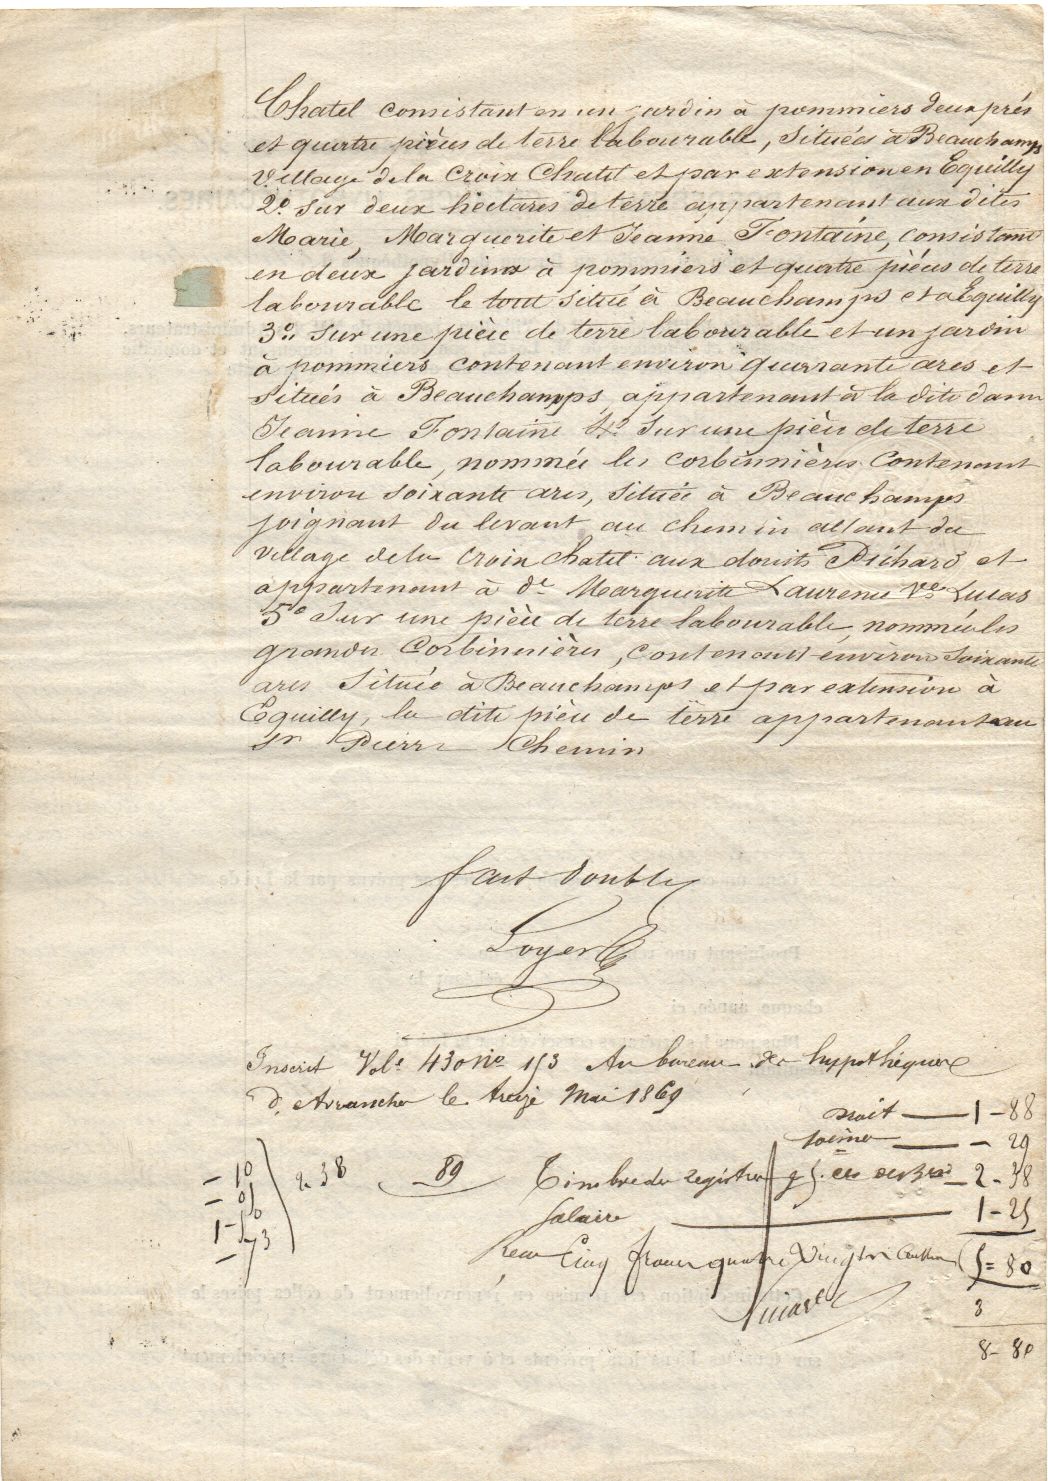 Chatel consistant en un jardin à pommiers deux prés
et quatre pièces de terre labourable, situées à Beauchamps
village de la Croix Chatel et par extension en Equilly
2º sur deux hectares de terre appartenant aux dites
Marie, Marguerite et Jeanne Fontaine, consistant
en deux jardins à pommiers et quatre pièces de terre
labourable le tout situé à Beauchamps et à Equilly
3º sur une pièce de terre labourable et un jardin
à pommiers contenant environ quarante ares et
situés à Beauchamps, appartenant à la dite dame
Jeanne Fontaine 4º sur une pièce de terre
labourable, nommée les Corbinnières contenant
environ soixante ares, située à Beauchamps
joignant du levant au chemin allant du
village de la Croix Chatel aux douits Pichard et
appartenant à de Marguerite Laurence Ve Lucas
5º sur une pièce de terre labourable, nommée les
grandes Corbinnières, contenant environ soixante
ares située à Beauchamps et par extension à
Equilly, la dite pièce de terre appartenant au
sr Pierre Chemin
fait double
Loyer
Inscrit Vole 430 No 153 Au bureau des hypothèques
d'Avranches le treize Mai 1869
droit — 1-88
— - 29
- 10
- 05
1-50
- 73
2-38
89
Timbre du registre — 2-38
Salaire — 1-25
Reçu Cinq francs quatre Vingts Centimes 5=80
3
8-80